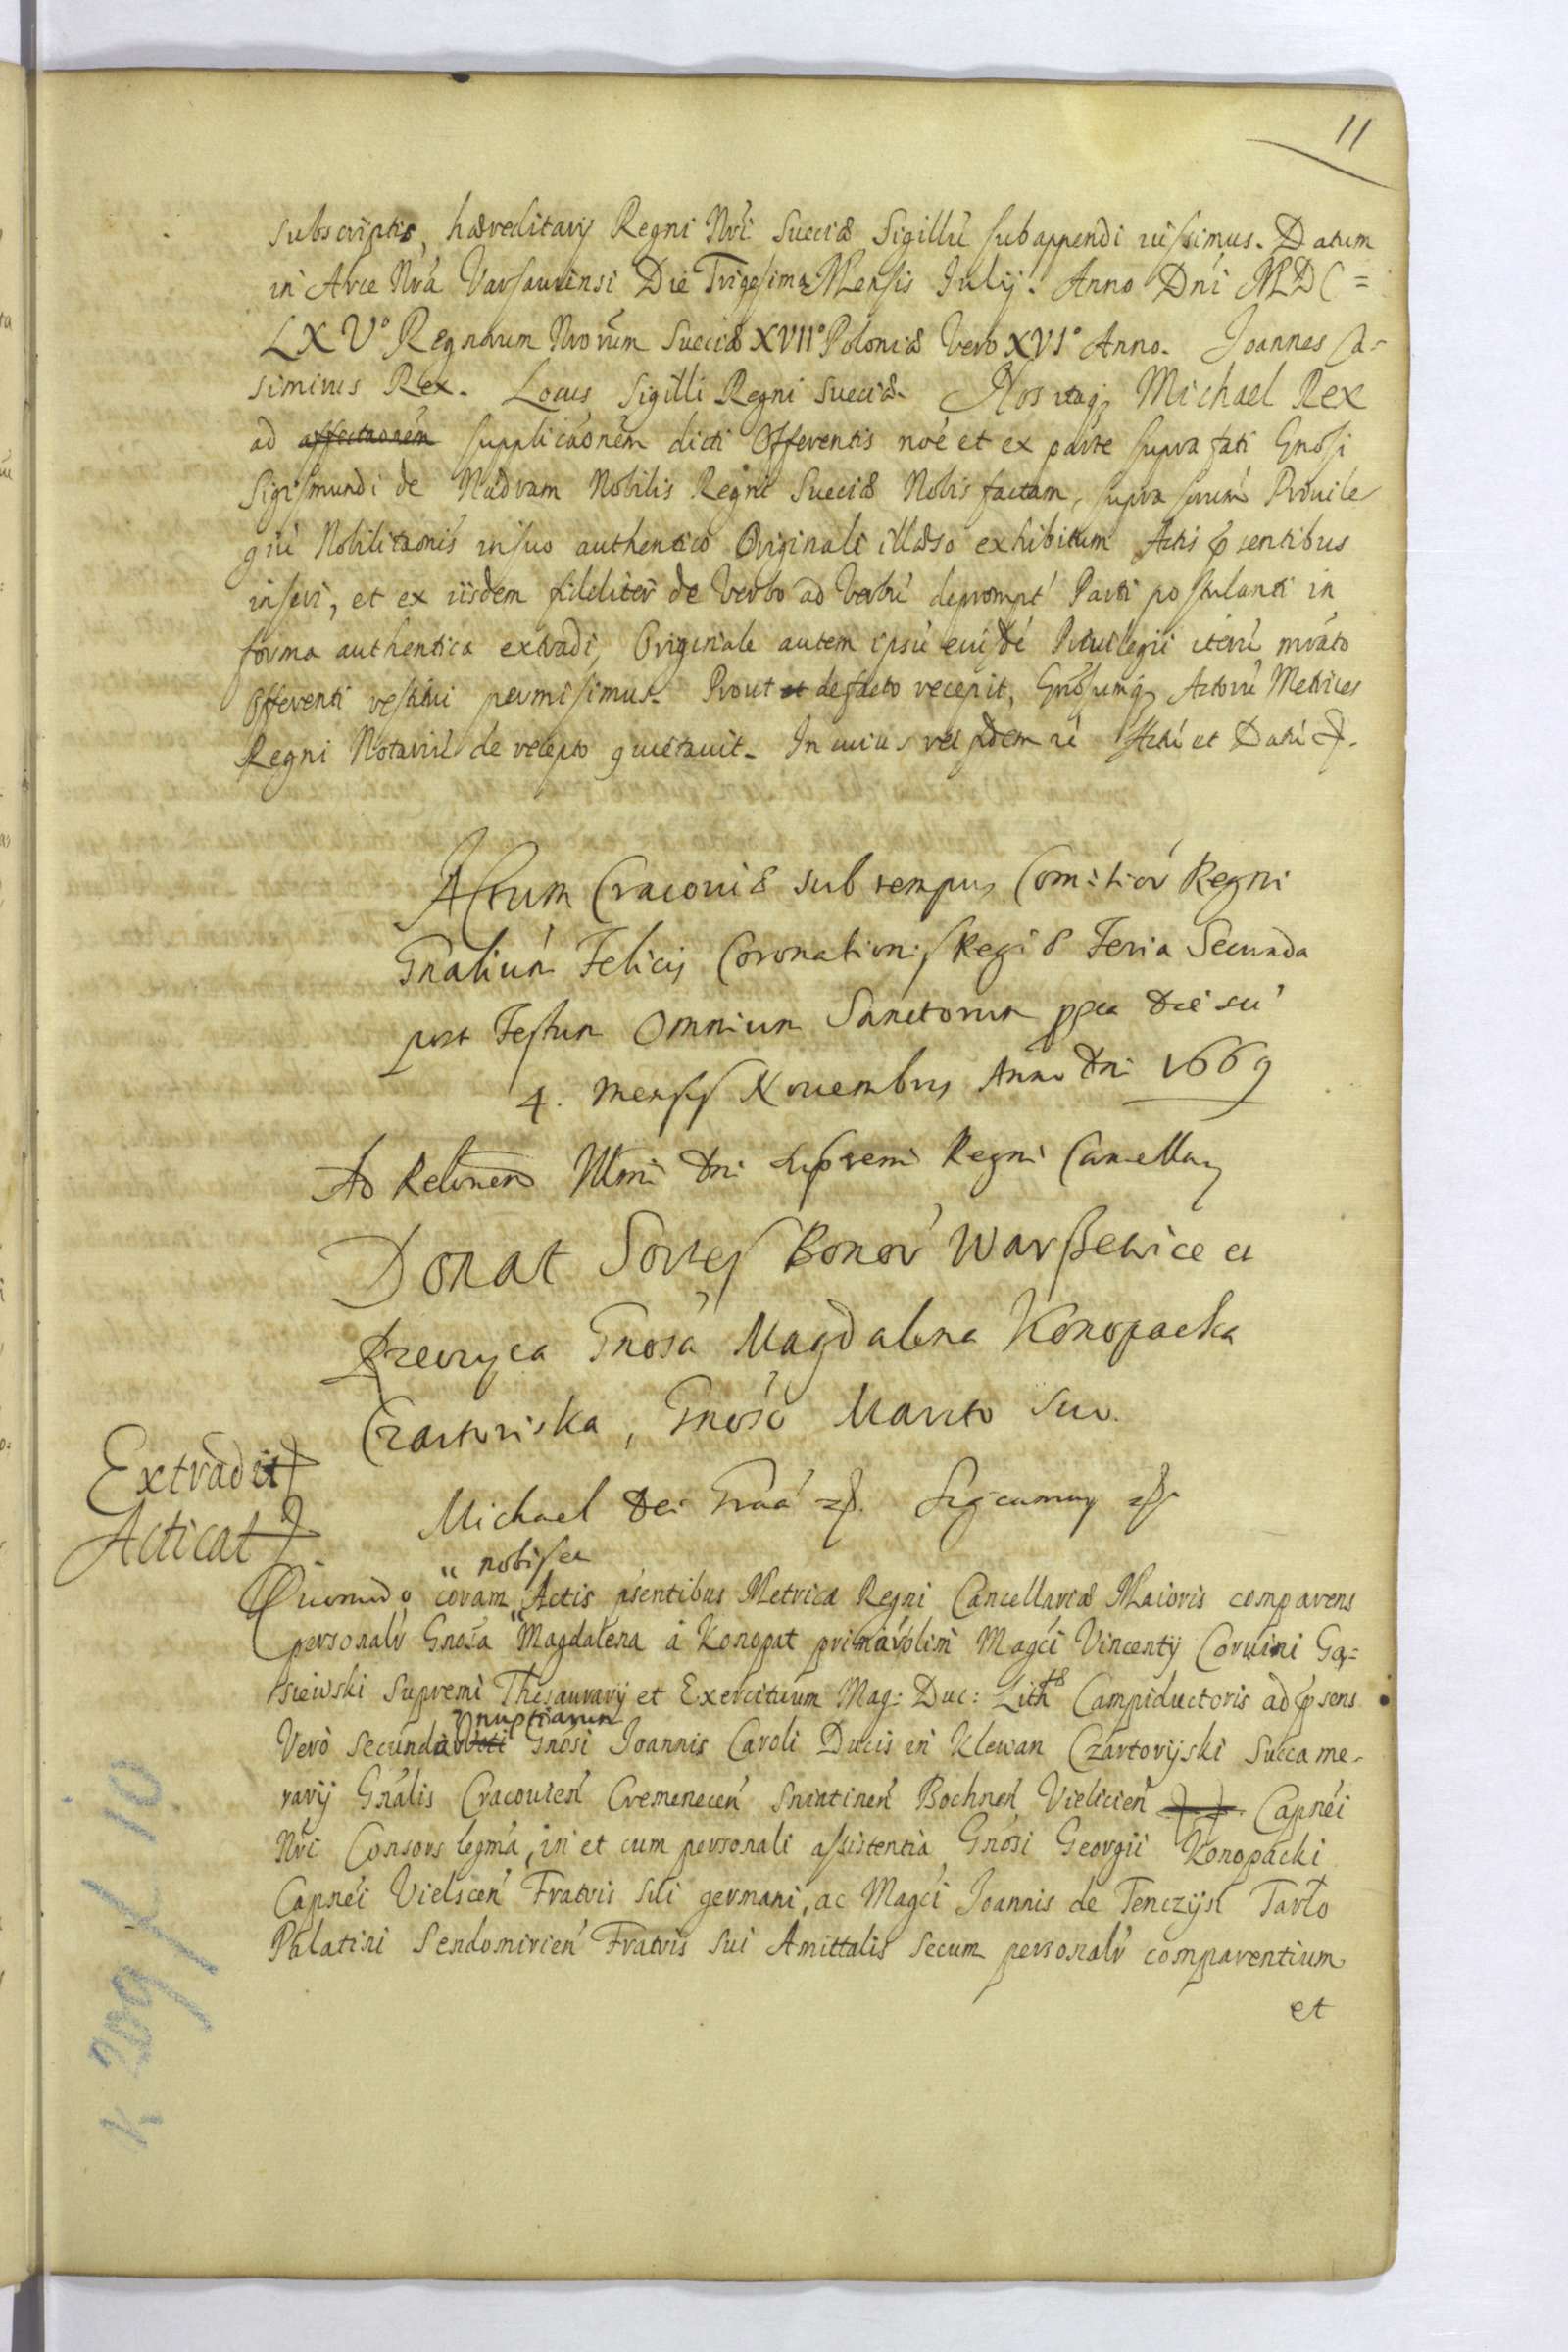 11
subscriptis, hæreditarij Regni Nrí Sueciæ Sigillú subappendi iussimus. Datum
in Arce Nrá Varsauiensi Die Trigesima Mensis Iulij. Anno Dní MDC=
LXV° Regnorum Nrorum Sueciæ XVII° Poloniæ Vero XVI° Anno. Joannes Ca-
simirus Rex. Locus Sigilli Regni Sueciæ. Nos itaq Michael Rex
ad affectaonem supplicaonem dicti Offerentis noé et ex parte supra fati Gnosi
Sigismundi de Nadram Nobilis Regni Sueciæ Nobis factam, supra Priuile
giú Nobilitaonis in suo authentico Originali illæso exhibitum Actis psentibus
inseri, et ex iisdem fideliter de Verbo ad Verbú deprompt Parti postulanti in
forma authentica extradi, Originale autem ipsú Priuilegii iterú
Offerenti restitui permisimus. Prout et de facto recepit, Actorú Metrices
Regni Notariú de recepto quietauit. In cuius rei Actú et Datú
Actum Cracouiæ sub tempus Comitiór Regni
Gnaliúm Felicis Coronationis Regiæ Feria Secunda
post Festum Omnium Sanctorum die
4. mensis Nouembris Anno Dni 1669
Ad Relonem Illmi Dni Supremi Regni Cancellarij
Donat Sortes Bonor Warszewice et
Przeuzyca Gnosá Magdalena Konopacka
Czartoriska, Gnosó Marito Suo.
Extradit
Acticat
Michael Dei Graá
nobis et
Quomodo coram Actis psentibus Metrica Regni Cancellariæ Maioris comparens
personalr Gnosa Magdalena á Konopat Magcí Vincentij Coruini Ga=
siewski Supremi Thesaurarij et Exercituum Mag: Duc: Lithæ Campiductoris ad psens
nuptiarum
Veró Secundar voti Gnosi Joannis Caroli Ducis in Klewan Czartorijski Succame-
rarij Gnális Cracouien Cremenecen Sniatinen Bochnen Vielicien Capnéi
Nrí Consors legma, in et cum personali assistentia Gnosi Georgii Konopacki
Capnéi Vielscen Fratris sui germani, ac Magcí Joannis de Tenczijn Tarło
Palatini Sendomirien Fratris sui Amittalis secum personalr comparentium
et
K 209/L 10